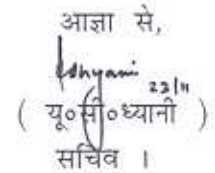 आज्ञा से,
23/11
( यू०सी०ध्यानी )
सचिव ।